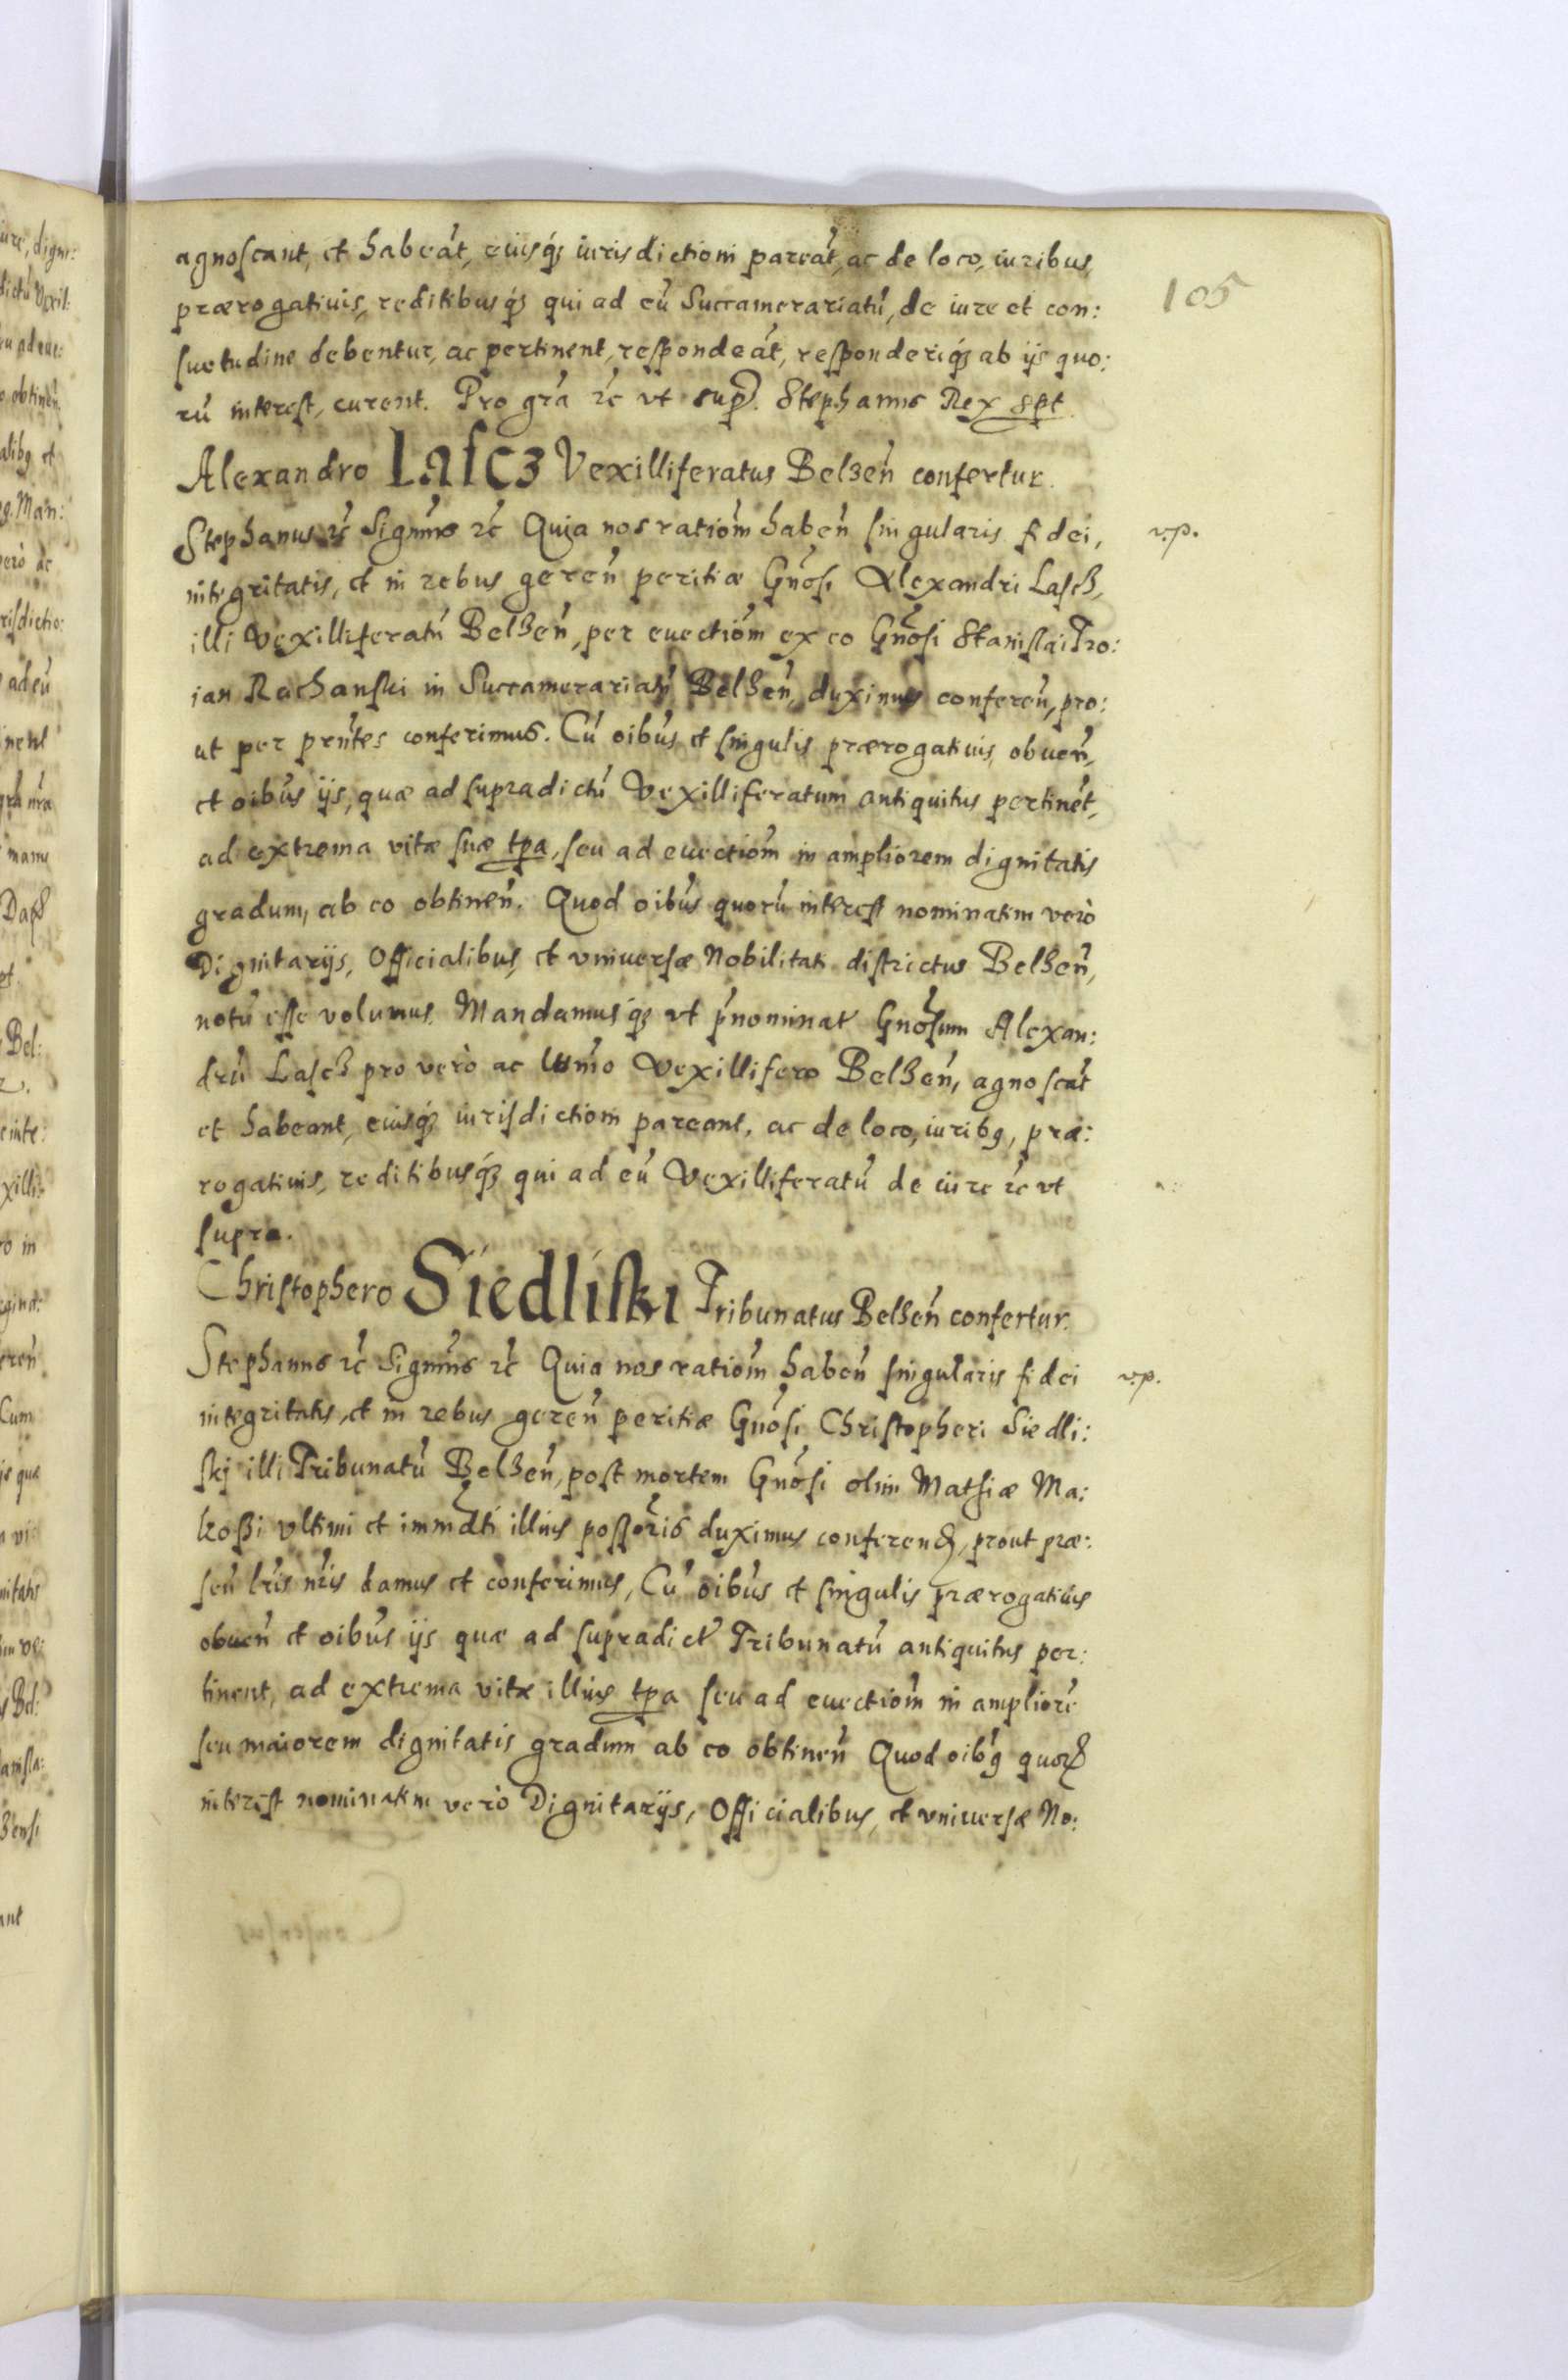 105
agnoscant, et habeāt, eiusq́ꝫ iurisdictioni pareāt, ac de loco, iuribus,
prærogativis, reditibusq́ꝫ qui ad eū Succamerariatū, de iure et con:
suetudine debentur, ac pertinent, respondeāt, responderiq́ꝫ ab ijs quo:
rū interest, curent. Pro gr̄a ⁊c̄ vt sup. Stephanus Rex spt
Alexandro Lascz Vexilliferatus Belzen̄ confertur.
Stephanus ⁊c̄ Signm̄us ⁊c̄ Quia nos ratiōm haben̄ singularis fidei,
v.p.
integritatis, et in rebus geren̄ peritiæ Gnōsi Alexandri Lascz,
illi Vexilliferatū Belzen̄, per evectiōm ex eo Gnōsi Stanislai Tro:
ian Rachanski in Succamerariatū Belzen̄, duximus conferen̄, pro:
ut per pn̄tes conferimus. Cū oibūs et singulis prærogativis, obuen̄,
et oibūs ijs, quæ ad supradictū Vexilliferatum antiquitus pertinēt,
ad extrema vitæ suæ tpa, seu ad euectiōm in ampliorem dignitatis
gradum, ab eo obtinen̄. Quod oibūs quorū interest nominatim verò
Dignitarijs, Officialibus, et vniuersæ Nobilitati districtus Belzen̄,
notū esse volumus. Mandamusq́ꝫ vt p̄nominat Gnōsum Alexan:
drū Lascz pro verò ac ltm̄o Vexillifero Belzen̄, agnoscāt
et habeant, eiusq́ꝫ iurisdictioni pareant, ac de loco, iuribꝫ, præ:
rogativis, reditibusq́ꝫ qui ad eū Vexilliferatū de iure ⁊c vt
supra.
Christophero Siedliski Tribunatus Belzen̄ confertur.
Stephanus ⁊c̄ Signm̄us ⁊c̄ Quia nos ratiōm haben̄ singularis fidei
v.p.
integritatis, et in rebus geren̄ peritiæ Gnōsi Christopheri Siedli:
skj illi Tribunatū Belzen̄, post mortem Gnōsi olim Mathiæ Ma:
koßi vltimi et immdti illius possōris duximus conferend, prout præ:
sen̄ lr̄is nr̄is damus et conferimus, Cū oibūs et singulis prærogativis
obuen̄ et oibūs ijs quæ ad supradict Tribunatū antiquitus per:
tinent, ad extrema vitæ illius tpa seu ad euectiōm in ampliorē
seu maiorem dignitatis gradum ab eo obtinen̄ Quod oibꝫ quoꝝ
interest nominatim verò Dignitarijs, Officialibus, et vniuersæ No: